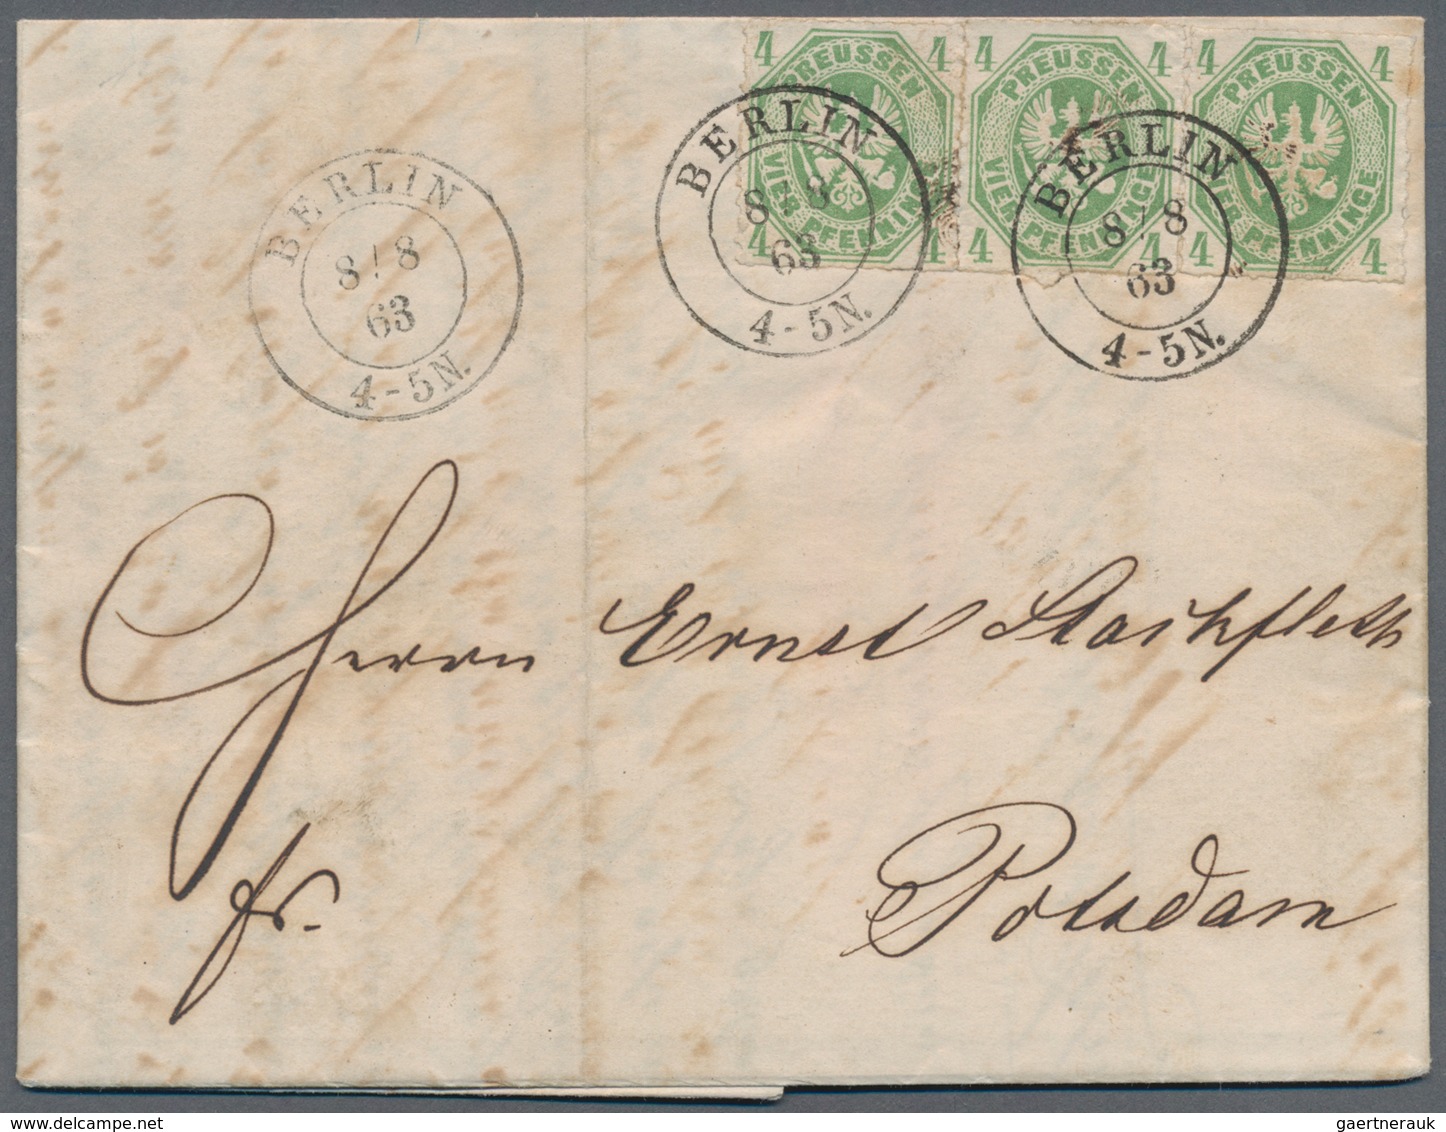 4 4 4 4 4 4
PREUSSEN PREUSSEN PREUSSEN
VIER PFENNINGE VIER PFENNINGE VIER PFENNINGE
4 4 4 4 4 4
BERLIN
8 8
63
4-5N.
BERLIN
8 8
63
4-5N.
BERLIN
8 8
63
4-5N.
Herrn Ernst
fr. Potsdam
gaertnerauk @ delcampe.net